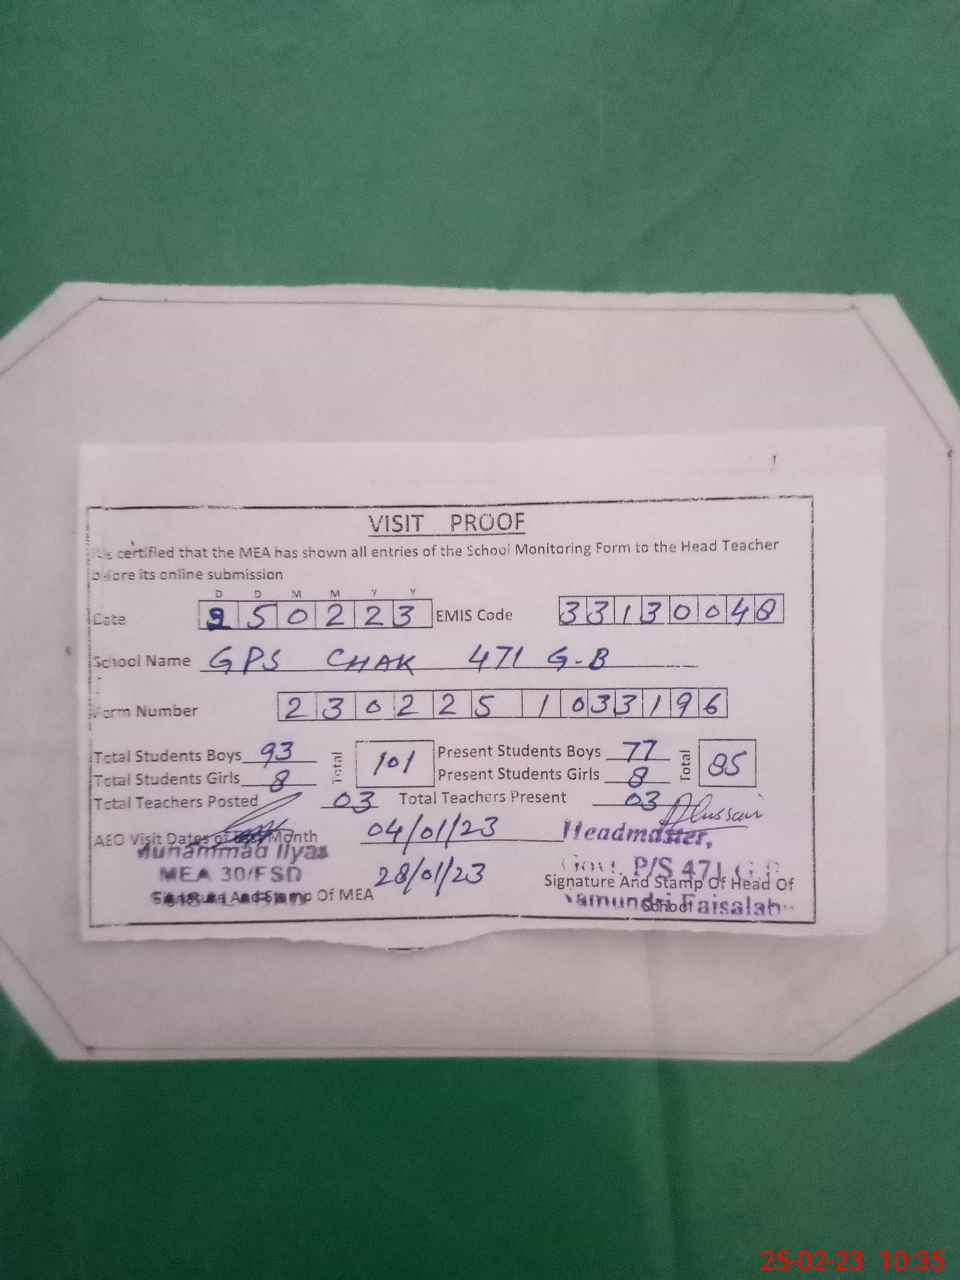 VISIT PROOF
certified that the MEA has shown all entries of the School Monitoring Form to the Head Teacher
before its online submission
D D M M Y Y
Date 250223 EMIS Code 33130048
School Name GPS CHAK 471 G-B
Form Number 230225 1033196
Total Students Boys 93 Total 101 Present Students Boys 77 Total 85
Total Students Girls 8 Present Students Girls 8
Total Teachers Posted 03 Total Teachers Present 03
AEO Visit Dates of Month 04/01/23 Hussain
Headmaster,
Muhammad Ilyas
MEA 30/FSD 28/01/23 Govt. P/S 471 G.B
Signature And Stamp Of MEA Signature And Stamp Of Head Of
School
Samundri Faisalabad
25-02-23 10:35